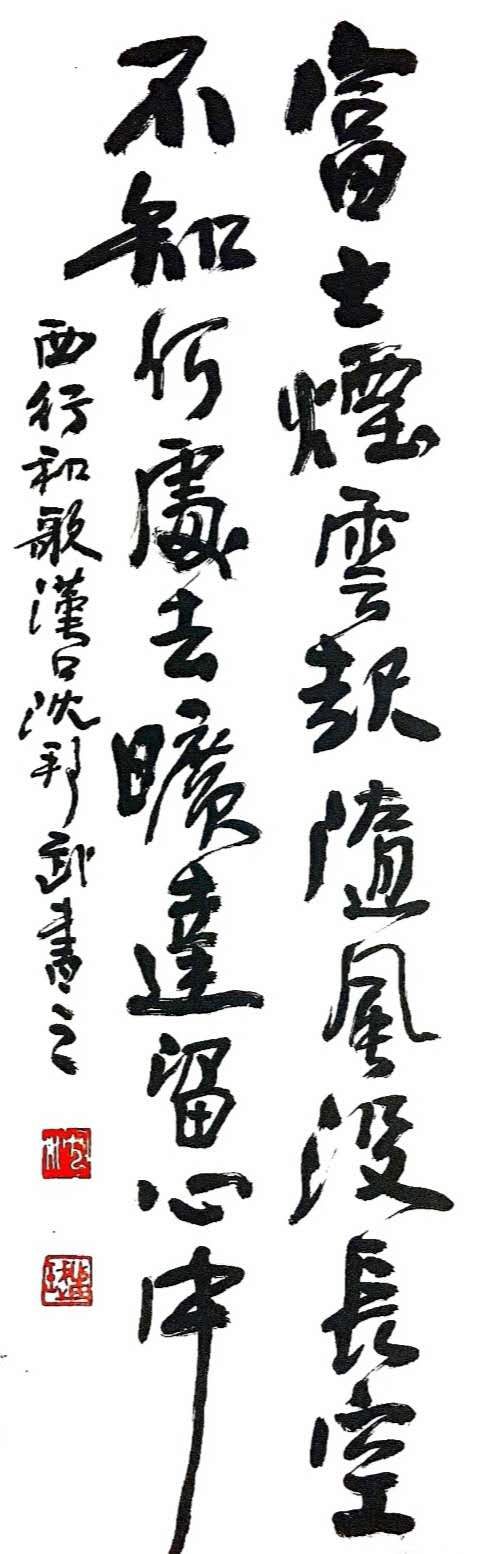 富士煙雲起隨風没長空
不知何處去曠達留心中
西行和歌漢口沈邦武書之